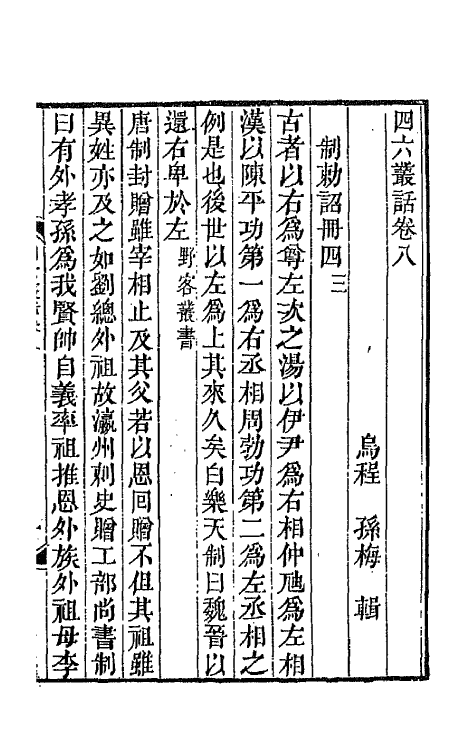 四六叢話卷八
烏程　孫梅　輯
制勅詔冊四三
古者以右爲尊左次之湯以伊尹爲右相仲虺爲左相
漢以陳平功第一爲右丞相周勃功第二爲左丞相之
例是也後世以左爲上其來久矣白樂天制曰魏晉以
還右卑於左野客叢書
唐制封贈雖宰相止及其父若以恩回贈不但其祖雖
異姓亦及之如劉總外祖故瀛州刺史贈工部尚書制
曰有外孝孫爲我賢帥自義率祖推恩外族外祖母李